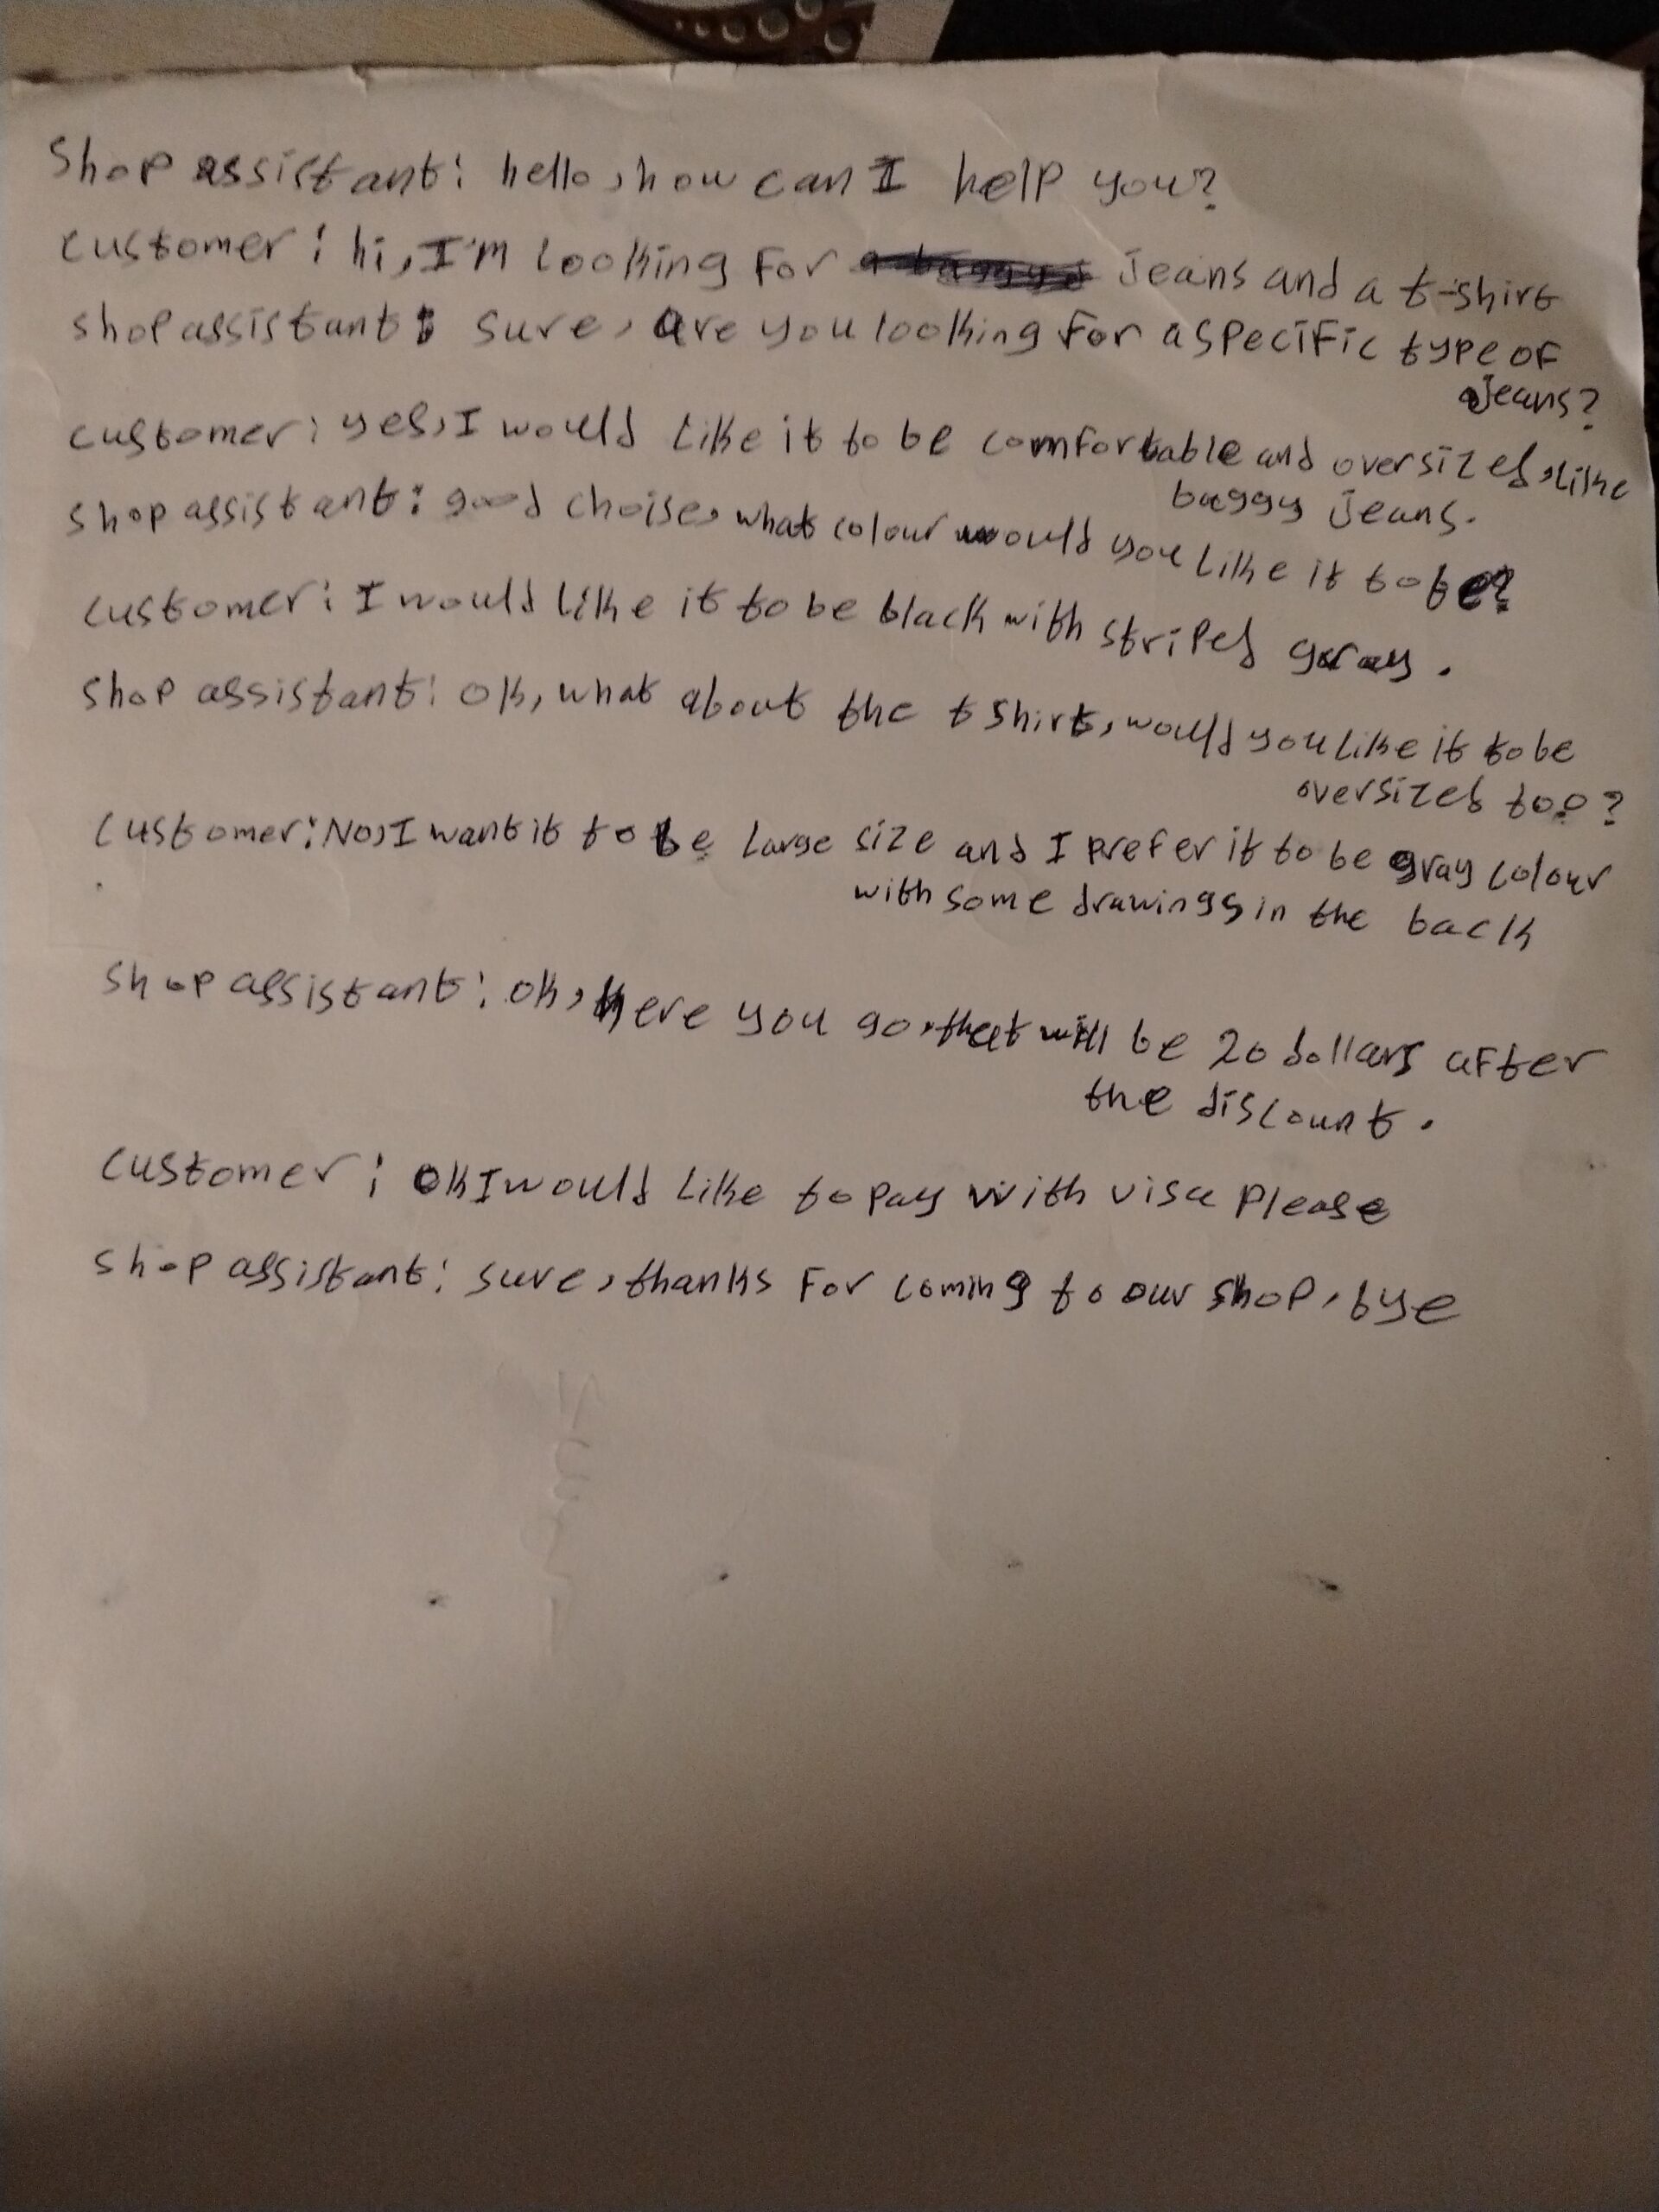 Shop assistant: hello, how can I help you?
customer: hi, I'm looking for jeans and a t-shirt
shop assistant: sure, are you looking for a specific type of
jeans?
customer: yes, I would like it to be comfortable and oversized, like
baggy jeans.
shop assistant: good choise, what colour would you like it to be?
customer: I would like it to be black with striped gray.
shop assistant: ok, what about the t shirt, would you like it to be
oversized too?
customer: No, I want it to be large size and I prefer it to be gray colour
with some drawings in the back
shop assistant: ok, here you go, that will be 20 dollars after
the discount.
customer: ok I would like to pay with visa please
shop assistant: sure, thanks for coming to our shop, bye